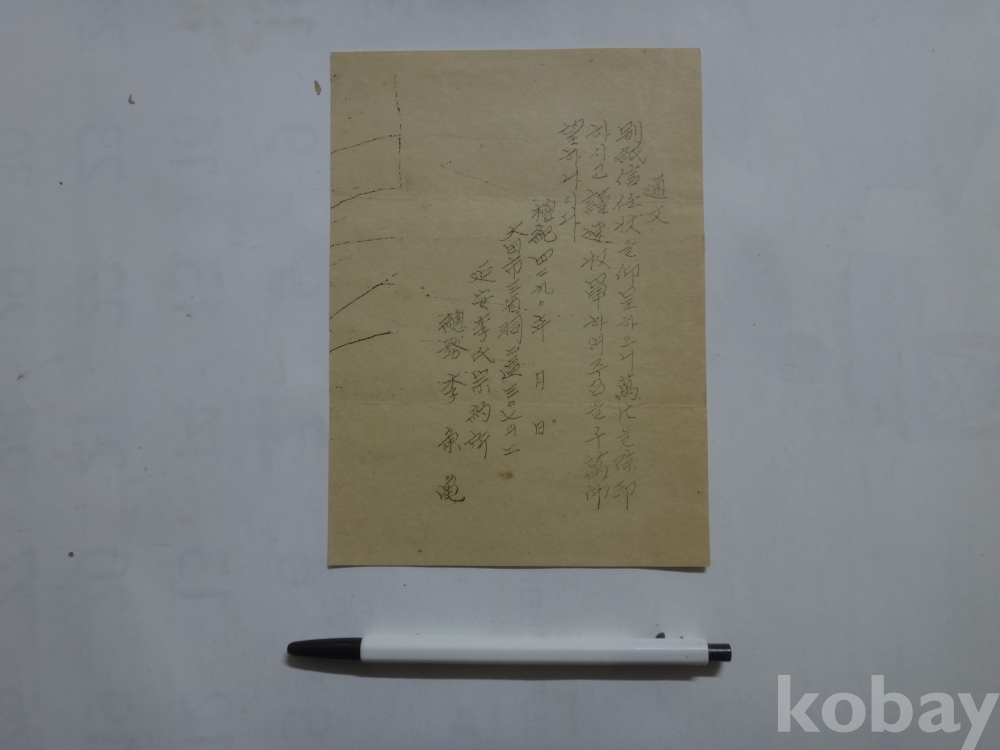 通文
別紙信任狀을仰呈하오니萬사를除却
하시고謹速收單하여주심을千萬仰
望하나이다
檀紀四二九〇年 月 日
大田市三省洞二區三〇七의二
延安李氏宗約所
總務 李
kobay